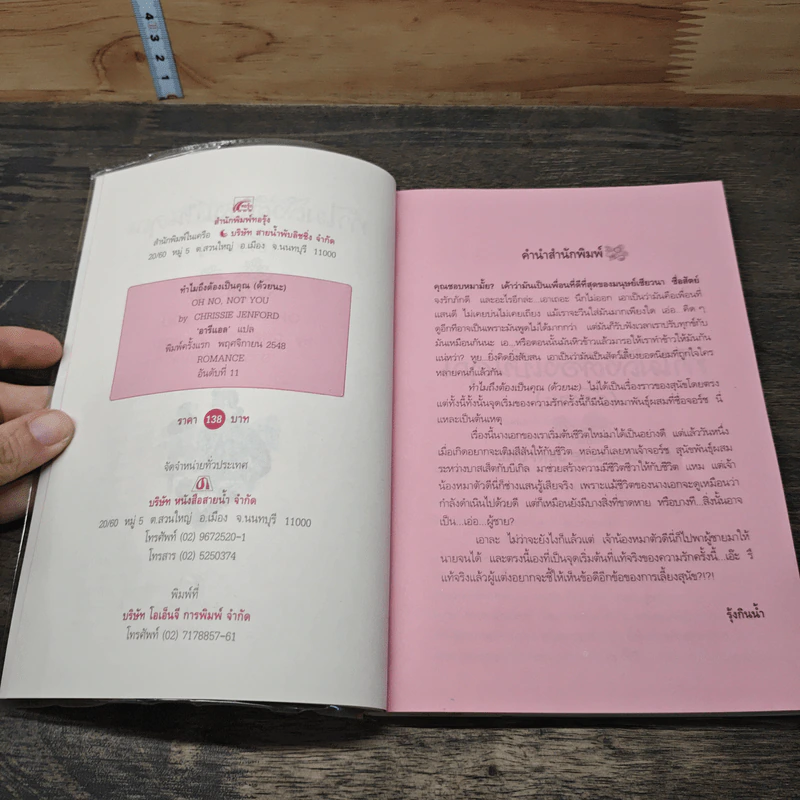 4 3 2 1
สำนักพิมพ์ทอรุ้ง
สำนักพิมพ์ในเครือ บริษัท สายน้ำพับลิชชิ่ง จำกัด
20/60 หมู่ 5 ต.สวนใหญ่ อ.เมือง จ.นนทบุรี 11000
ทำไมถึงต้องเป็นคุณ (ด้วยนะ)
OH NO, NOT YOU
by CHRISSIE JENFORD
'อารีแอล' แปล
พิมพ์ครั้งแรก พฤศจิกายน 2548
ROMANCE
อันดับที่ 11
ราคา 138 บาท
จัดจำหน่ายทั่วประเทศ
บริษัท หนังสือสายน้ำ จำกัด
20/60 หมู่ 5 ต.สวนใหญ่ อ.เมือง จ.นนทบุรี 11000
โทรศัพท์ (02) 9672520-1
โทรสาร (02) 5250374
พิมพ์ที่
บริษัท โอเอ็นจี การพิมพ์ จำกัด
โทรศัพท์ (02) 7178857-61
คำนำสำนักพิมพ์
คุณชอบหมามั้ย? เค้าว่ามันเป็นเพื่อนที่ดีที่สุดของมนุษย์เชียวนา ซื่อสัตย์
จงรักภักดี และอะไรอีกล่ะ...เอาเถอะ นึกไม่ออก เอาเป็นว่ามันคือเพื่อนที่
แสนดี ไม่เคยบ่นไม่เคยเถียง แม้เราจะวีนใส่มันมากเพียงใด เอ่อ.. คิด ๆ
ดูอีกทีอาจเป็นเพราะมันพูดไม่ได้มากกว่า แต่มันก็รับฟังเวลาเราบริบทุกข์กับ
มันเหมือนกันนะ เอ...หรือตอนนั้นมันหิวข้าวแล้วมารอให้เราทำข้าวให้มันกัน
แน่หว่า? หูย...ยิ่งคิดยิ่งสับสน เอาเป็นว่ามันเป็นสัตว์เลี้ยงยอดนิยมที่ถูกใจใคร
หลายคนก็แล้วกัน
ทำไมถึงต้องเป็นคุณ (ด้วยนะ) ไม่ได้เป็นเรื่องราวของสุนัขโดยตรง
แต่ทั้งนี้ทั้งนั้นจุดเริ่มของความรักครั้งนี้ก็มีน้องหมาพันธุ์ผสมที่ชื่อจอร์ช นี่
แหละเป็นต้นเหตุ
เรื่องนี้นางเอกของเราเริ่มต้นชีวิตใหม่มาได้เป็นอย่างดี แต่แล้ววันหนึ่ง
เมื่อเกิดอยากจะเติมสีสันให้กับชีวิต หล่อนก็เลยหาเจ้าจอร์ช สุนัขพันธุ์ผสม
ระหว่างบาสเส็ตกับบีเกิล มาช่วยสร้างความมีชีวิตชีวาให้กับชีวิต แหม แต่เจ้า
น้องหมาตัวดีนี่ก็ช่างแสนรู้เสียจริง เพราะแม้ชีวิตของนางเอกจะดูเหมือนว่า
กำลังดำเนินไปด้วยดี แต่ก็เหมือนยังมีบางสิ่งที่ขาดหาย หรือบางที...สิ่งนั้นอาจ
เป็น...เอ่อ...ผู้ชาย?
เอาละ ไม่ว่าจะยังไงก็แล้วแต่ เจ้าน้องหมาตัวดีนี่ก็ไปพาผู้ชายมาให้
นายจนได้ และตรงนี้เองที่เป็นจุดเริ่มต้นที่แท้จริงของความรักครั้งนี้...เอ๊ะ รึ
แท้จริงแล้วผู้แต่งอยากจะชี้ให้เห็นข้อดีอีกข้อของการเลี้ยงสุนัข?!?!
รุ้งกินน้ำ